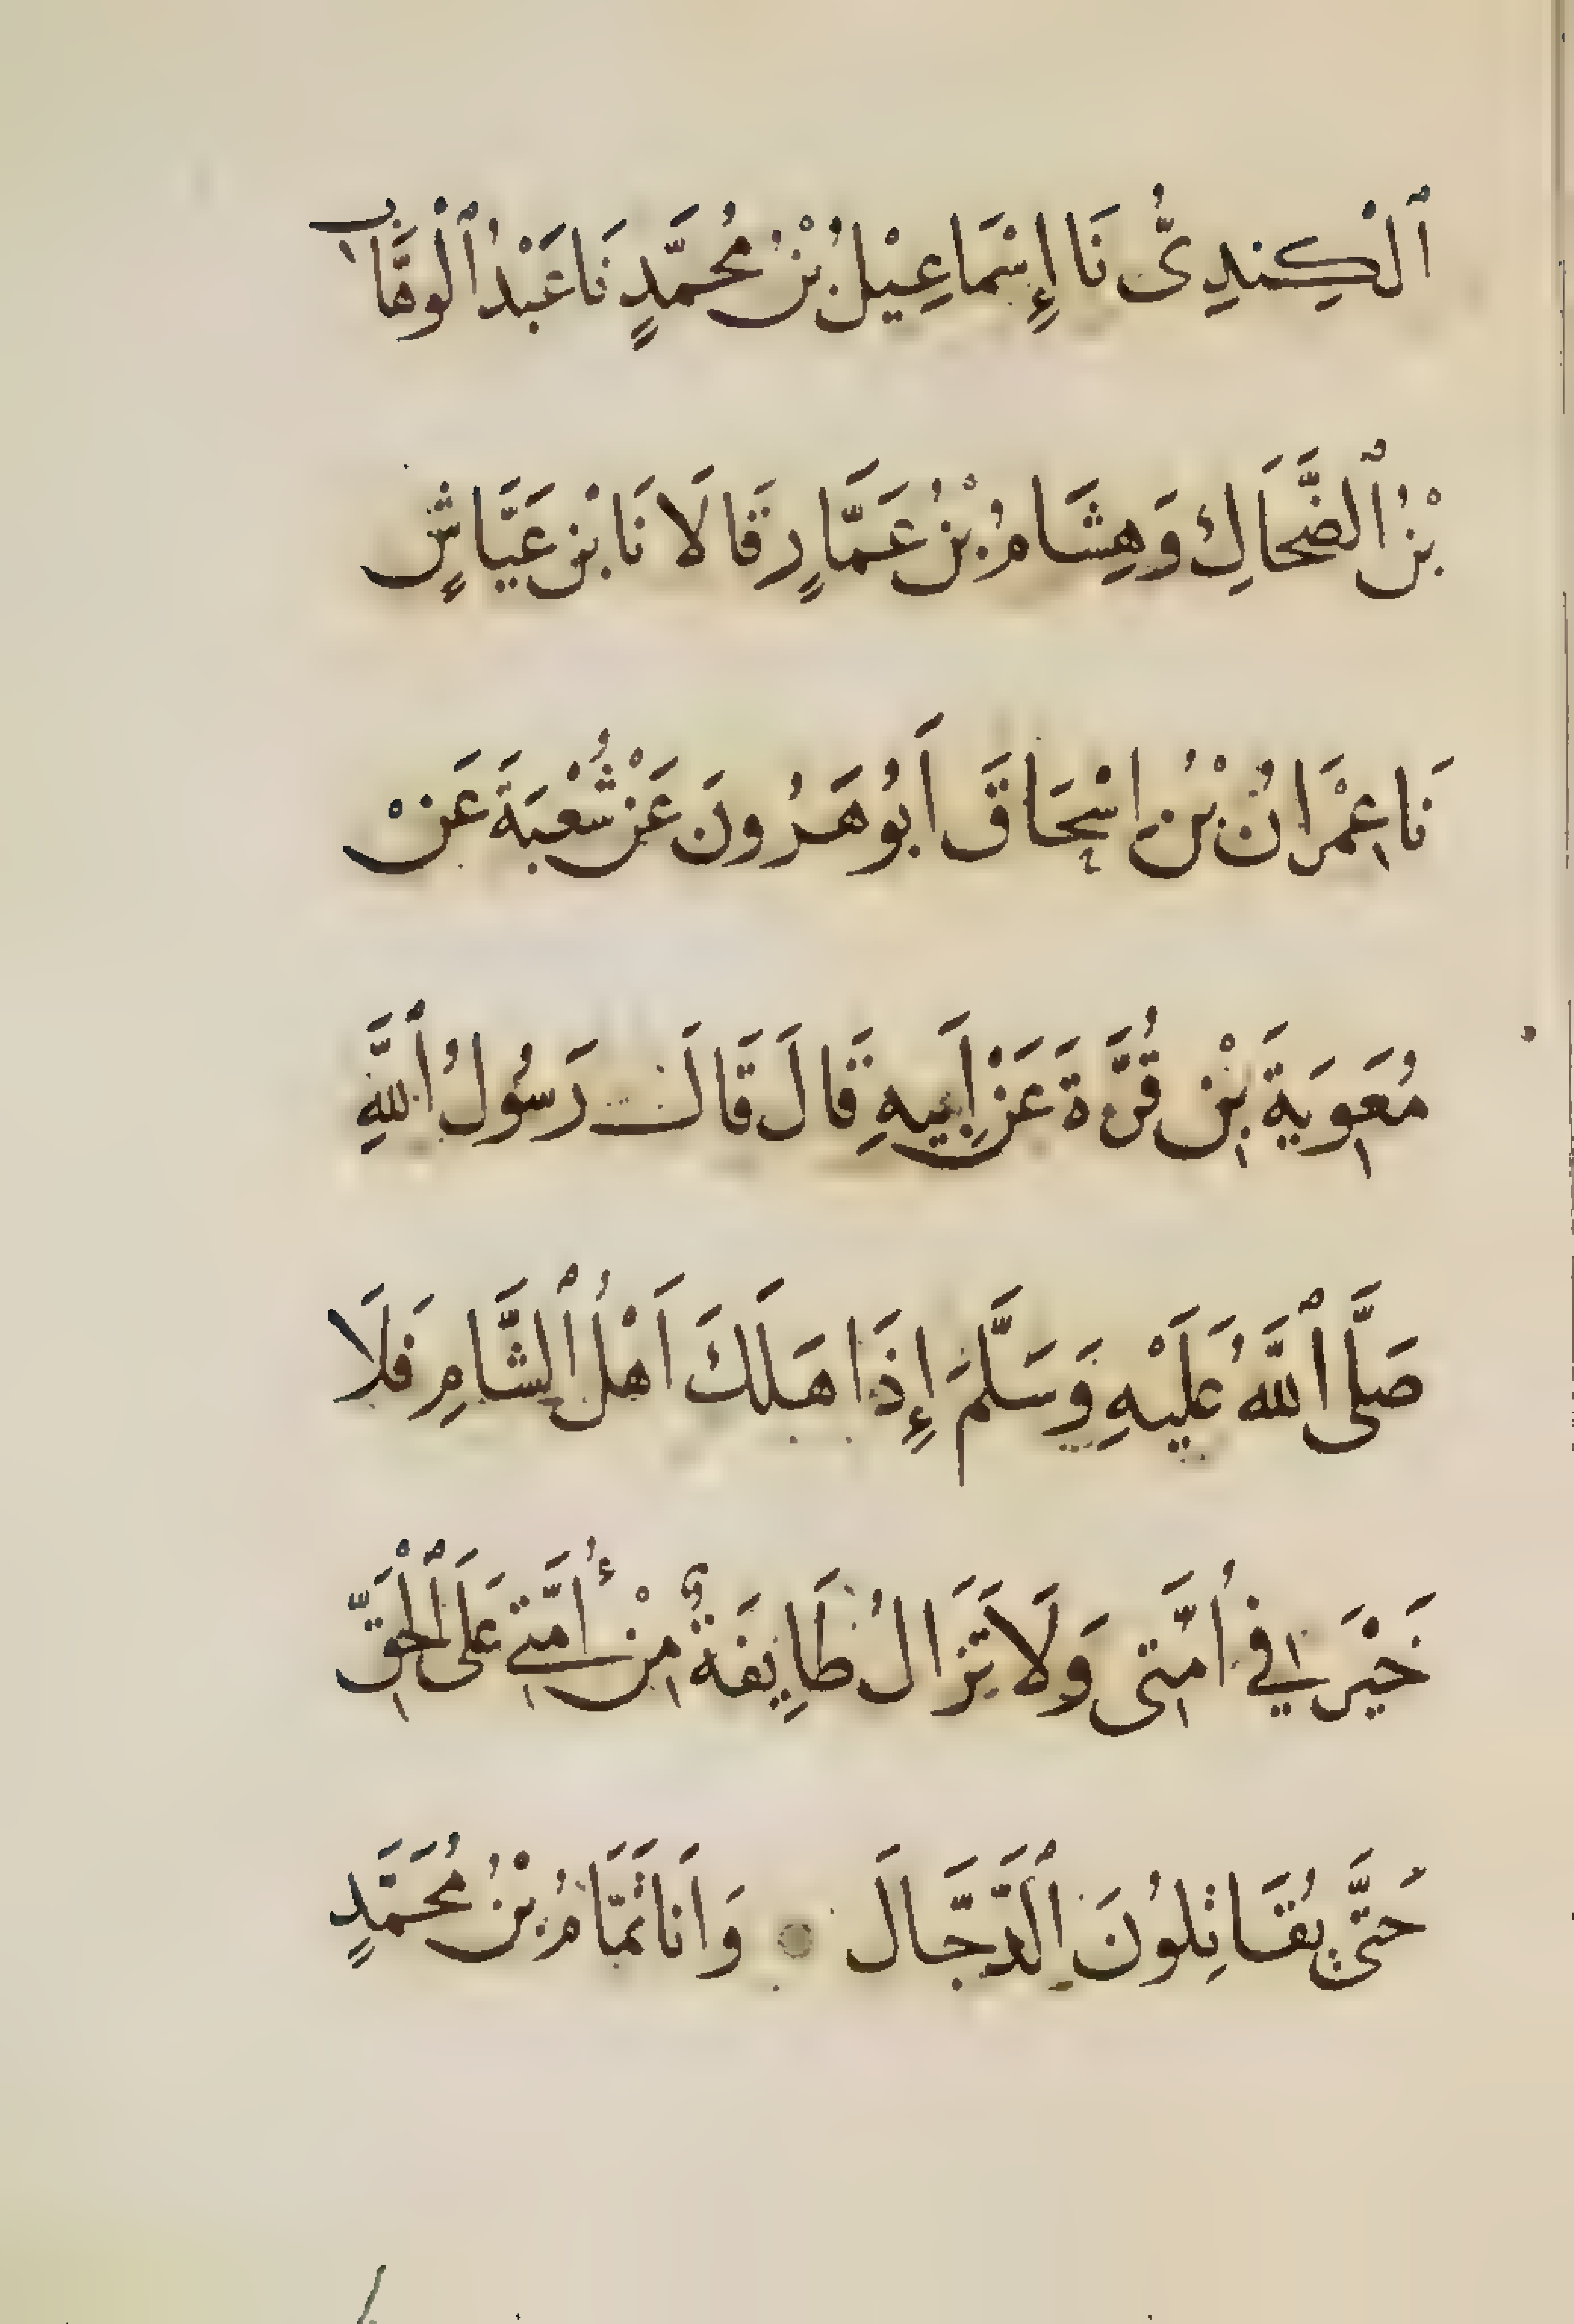 ٱلْكِندِىُّ نَا إِسْمَاعِيْلُ بْنُ مُحَمَّدٍ نَا عَبْدُ ٱلْوَهَّابِ
بْنُ ٱلضَّحَاكِ وَهِشَامُ بْنُ عَمَّارٍ قَالَا نَا بْن عَيَّاشٍ
نَا عِمْرَانُ بْنُ اسْحَاقَ اَبُو هَرُونَ عَنْ شُعْبَةَ عَنْ
مُعَوِيَةَ بْنِ قُرَّةَ عَنْ اَبِيهِ قَالَ قَالَ رَسُولُ ٱللَّهِ
صَلَّى ٱللَّهُ عَلَيْهِ وَسَلَّمَ إِذَا هَلَكَ اَهْلُ ٱلشَّامِ فَلَا
خَيْرَ فِي اُمَّتِى وَلَا تَزَالُ طَايِفَةٌ مِنْ أُمَّتِي عَلَى ٱلْحَقِّ
حَتَّى يُقَاتِلُونَ ٱلَدَّجَّالَ وَاَنَا تَمَّامُ بْنُ مُحَمَّدٍ